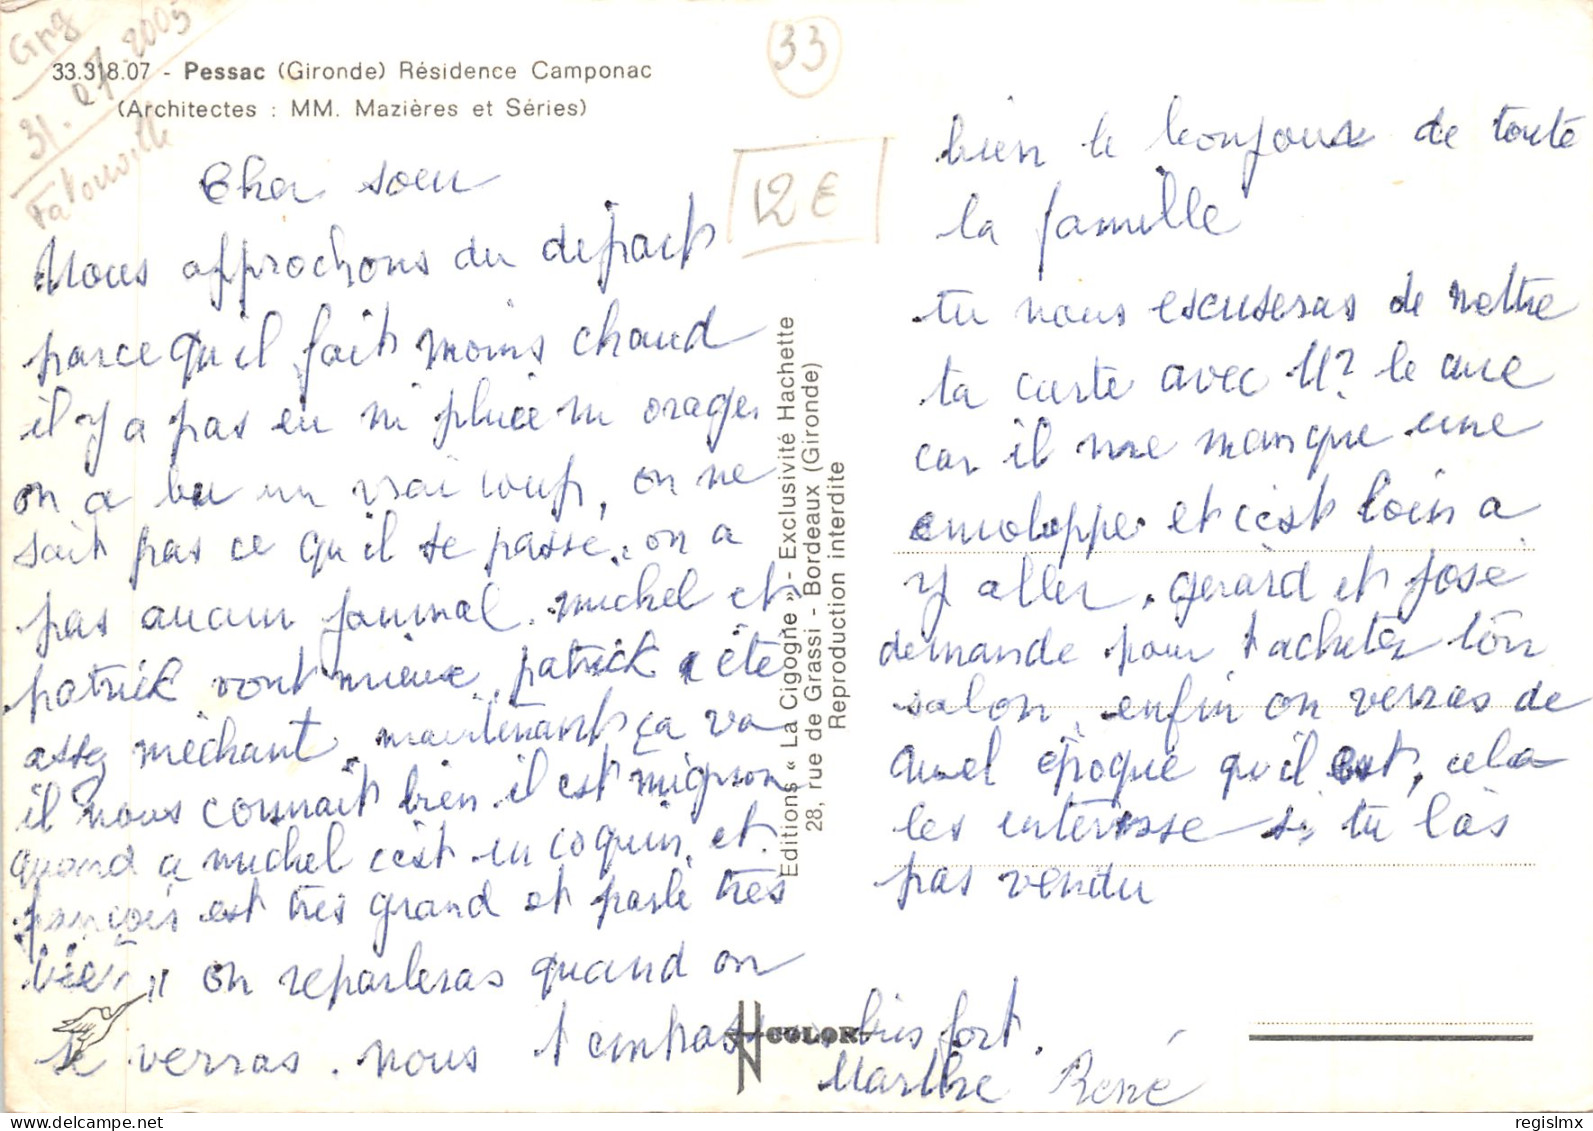 Gng
31.07.2005
Fatouville
33
12 €
33.318.07 - Pessac (Gironde) Résidence Camponac
(Architectes : MM. Mazières et Séries)
Cher soeu
Nous approchons du départ
parce qu'il fait moins chaud
il y a pas eu ni pluie ni orage.
on a bu un vrai coup, on ne
sait pas ce qu'il se passe. on a
pas aucun journal. michel et
patrick vont mieux. patrick a été
assez méchant. maintenant ça va
il nous connait bien. il est mignon
quand a michel c'est un coquin. et.
françois est très grand et parle très
bien " on reparleras quand on
te verras. nous t'embrassons bien fort.
Marthe René
bien le bonjour de toute
la famille
tu nous escuseras de mettre
ta carte avec le
car il me manque une
enveloppe et c'est loin a
y aller. gerard et josé
demande pour t'acheter ton
salon, enfin on verras de
quel époque qu'il est, cela
les intéresse si tu l'as
pas vendu
Editions « La Cigogne » - Exclusivité Hachette
28, rue de Grassi - Bordeaux (Gironde)
Reproduction interdite
COLOR
regislmx